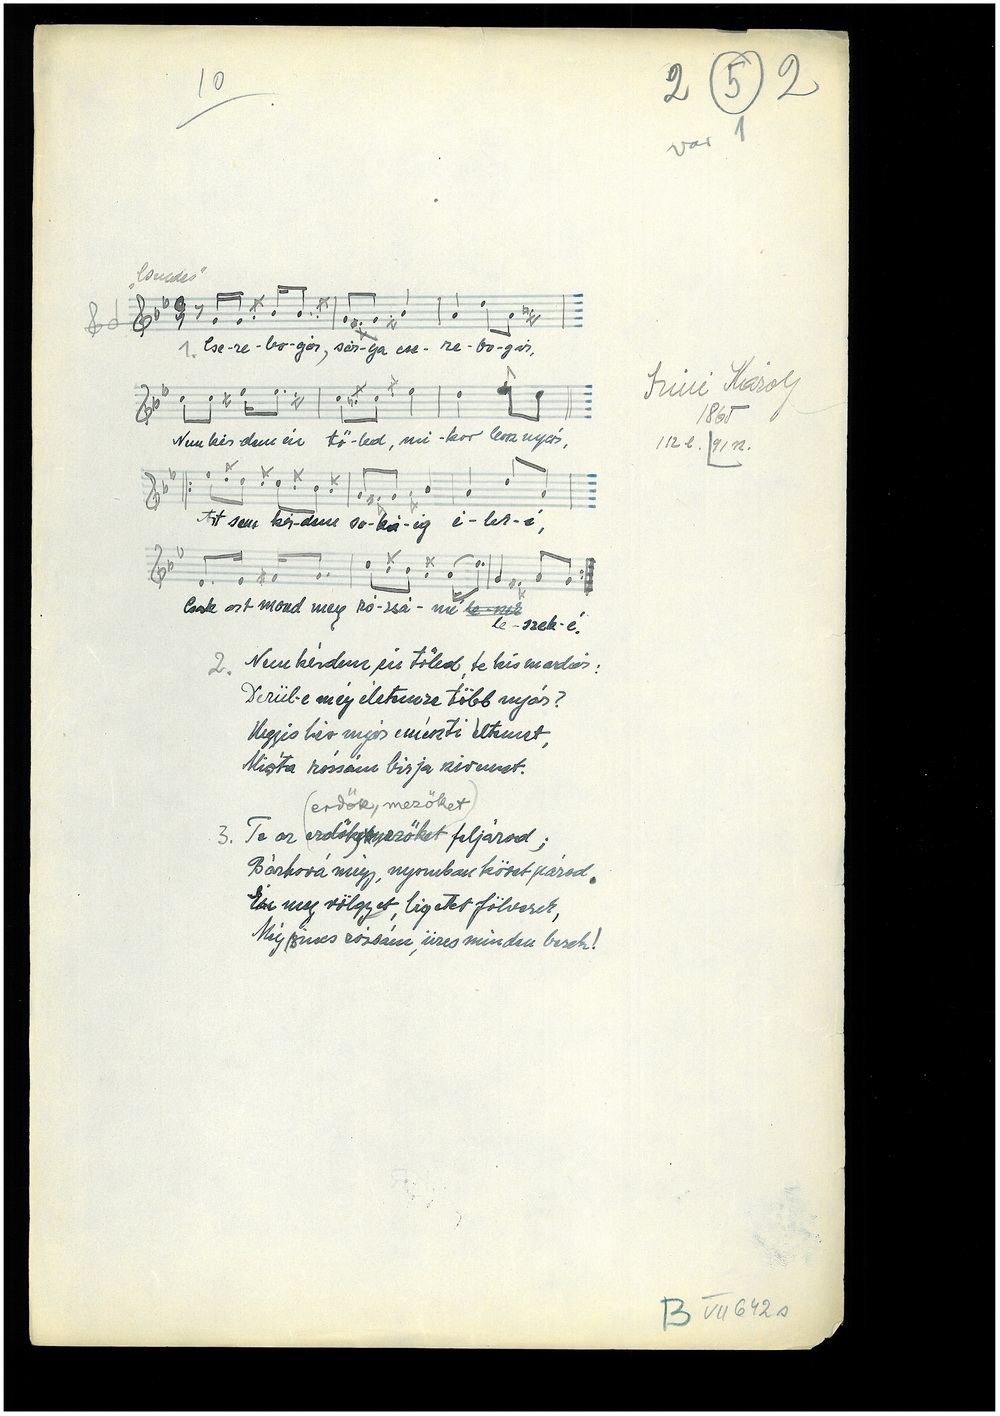 10
2 5 2
var 1
"Csendes"
1. Cse-re-bo-gár, sár-ga cse-re-bo-gár,
Nem kér-dem én tő-led, mi-kor lesz nyár,
Azt sem kér-dem so-ká-ig é-lek-é,
Csak azt mond meg ró-zsá-mé
le-szek-é.
Színi Károly
1865
112 l. 91 sz.
2. Nem kérdem én tőled, te kis madár:
Derül-e még életemre több nyár?
Úgyis hév nyár emészti éltemet,
Mióta rózsám birja szivemet.
(erdők, mezőket)
3. Te az erdőket, mezőket feljárod;
Bárhová mégy, nyomban követ párod.
Én meg völgyet, ligetet fölverek,
Míg nincs rózsám, üres minden berek!
B VII 642a